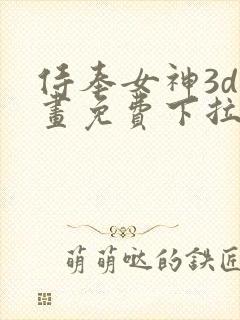 侍奉女神3d
畫免費下拉
萌萌噠的鉄匠